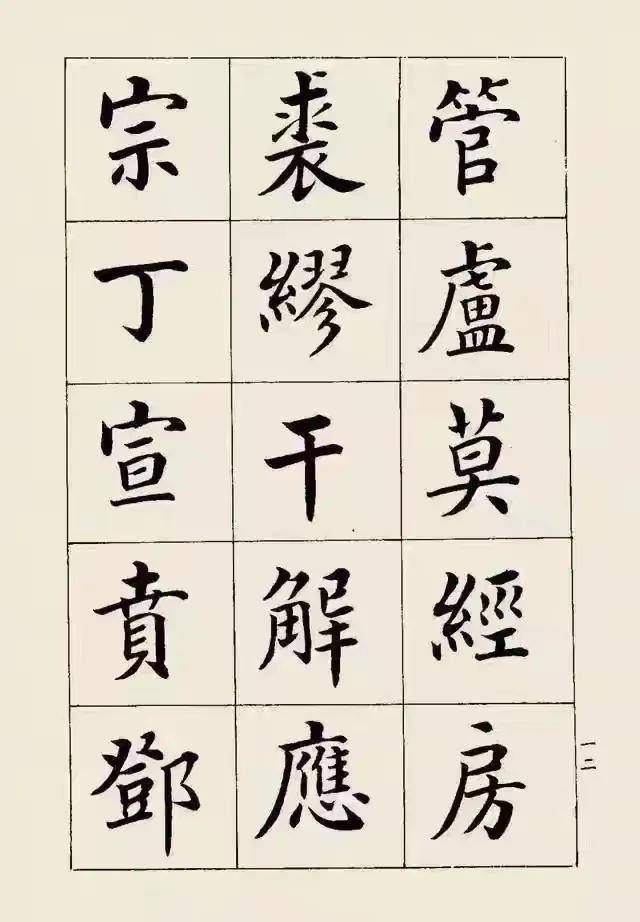 管盧莫經房
裘繆干解應
宗丁宣賁鄧
一二